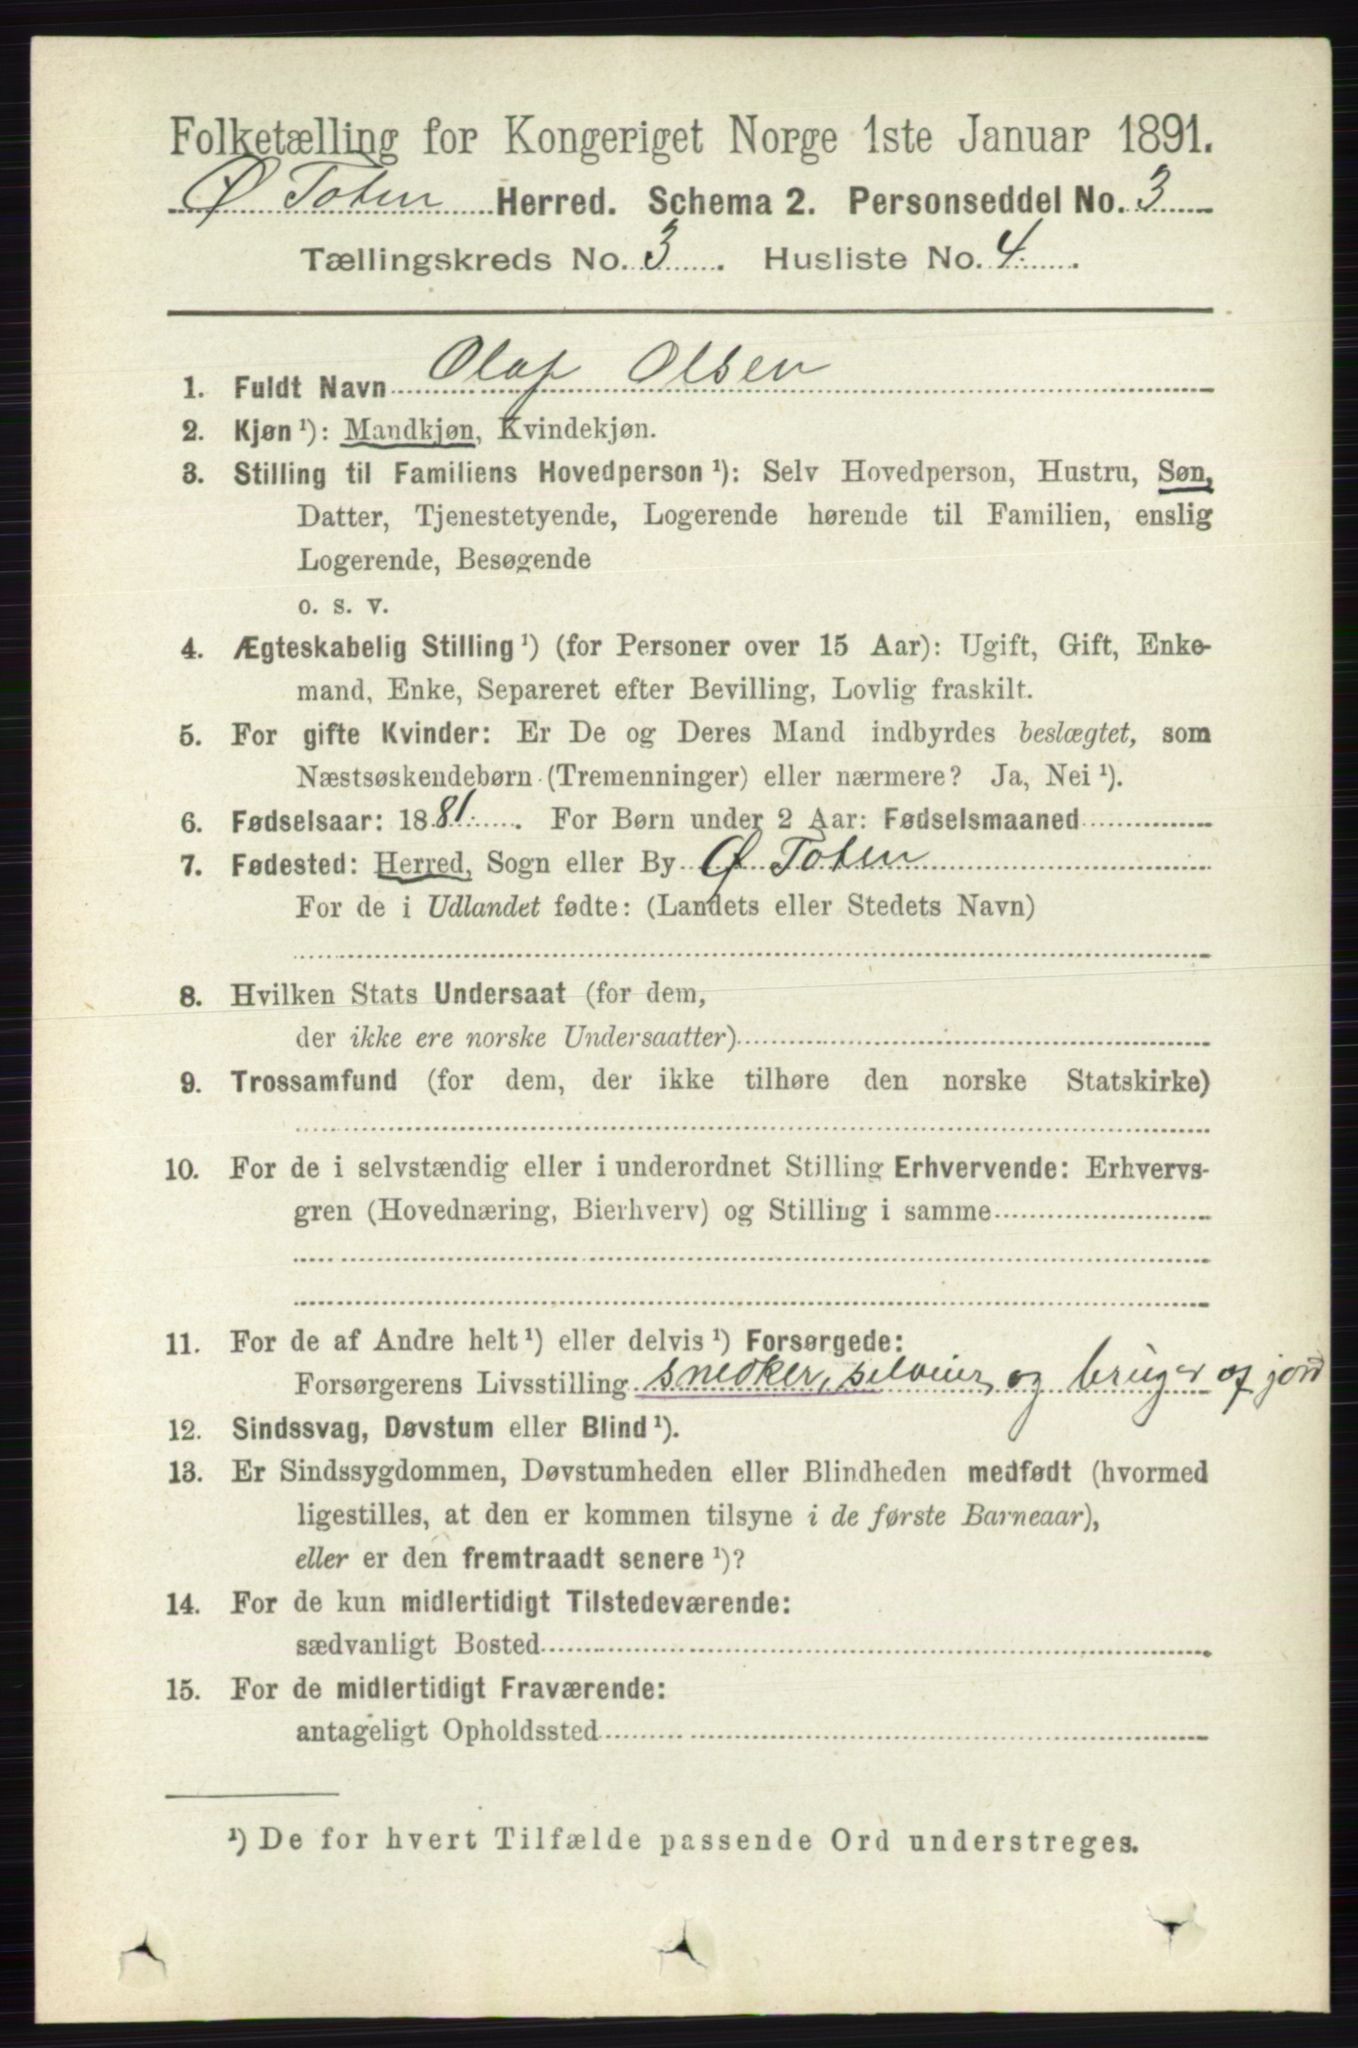 Folketælling for Kongeriget Norge 1ste Januar 1891.
Ø Toten Herred. Schema 2. Personseddel No. 3
Tællingskreds No. 3. Husliste No. 4.
1. Fuldt Navn Olaf Olsen
2. Kjøn ¹): Mandkjøn, Kvindekjøn.
3. Stilling til Familiens Hovedperson ¹): Selv Hovedperson, Hustru, Søn,
Datter, Tjenestetyende, Logerende hørende til Familien, enslig
Logerende, Besøgende
o. s. v.
4. Ægteskabelig Stilling ¹) (for Personer over 15 Aar): Ugift, Gift, Enke-
mand, Enke, Separeret efter Bevilling, Lovlig fraskilt.
5. For gifte Kvinder: Er De og Deres Mand indbyrdes beslægtet, som
Næstsøskendebørn (Tremenninger) eller nærmere? Ja, Nei ¹).
6. Fødselsaar: 1881. For Børn under 2 Aar: Fødselsmaaned
7. Fødested: Herred, Sogn eller By Ø Toten
For de i Udlandet fødte: (Landets eller Stedets Navn)
8. Hvilken Stats Undersaat (for dem,
der ikke ere norske Undersaatter)
9. Trossamfund (for dem, der ikke tilhøre den norske Statskirke)
10. For de i selvstændig eller i underordnet Stilling Erhvervende: Erhvervs-
gren (Hovednæring, Bierhverv) og Stilling i samme
11. For de af Andre helt ¹) eller delvis ¹) Forsørgede:
Forsørgerens Livsstilling snedker, selveier og bruger af jord
12. Sindssvag, Døvstum eller Blind ¹).
13. Er Sindssygdommen, Døvstumheden eller Blindheden medfødt (hvormed
ligestilles, at den er kommen tilsyne i de første Barneaar),
eller er den fremtraadt senere ¹)?
14. For de kun midlertidigt Tilstedeværende:
sædvanligt Bosted
15. For de midlertidigt Fraværende:
antageligt Opholdssted
¹) De for hvert Tilfælde passende Ord understreges.